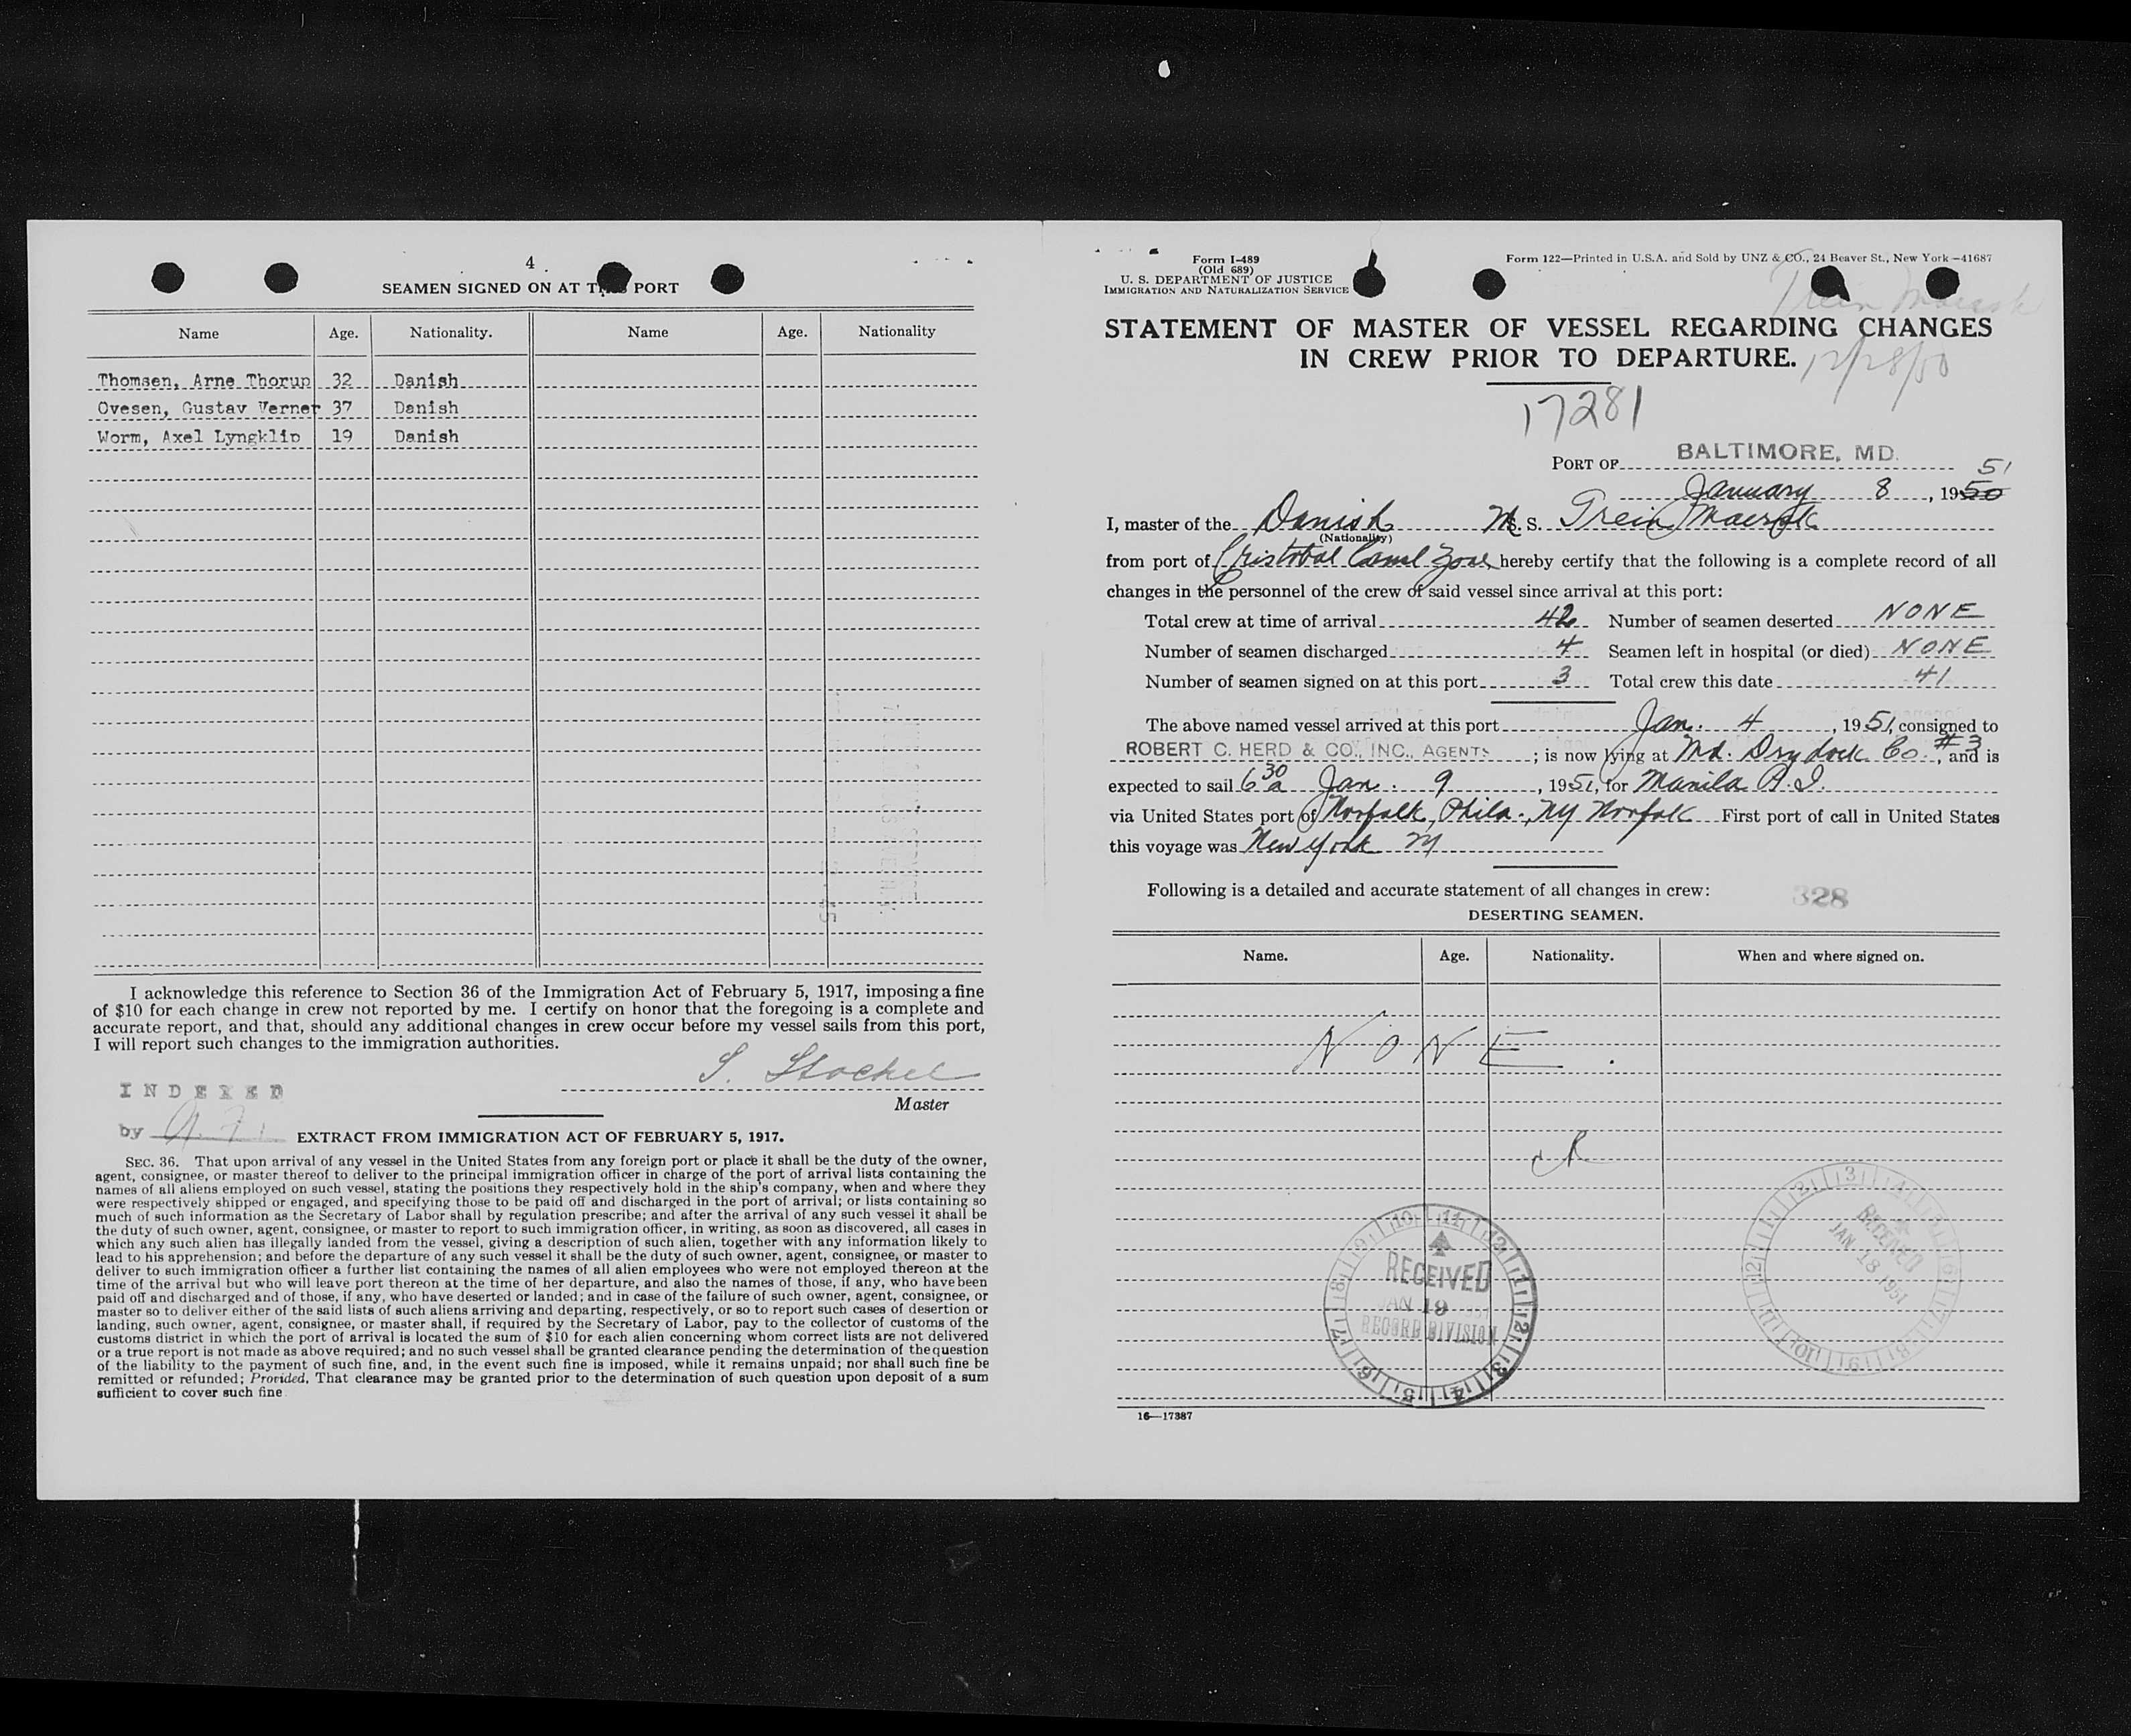 4
SEAMEN SIGNED ON AT THIS PORT
Name Age. Nationality. Name Age. Nationality
Thomsen, Arne Thorup 32 Danish
Ovesen, Gustav Verner 37 Danish
Worm, Axel Lyngklip 19 Danish
I acknowledge this reference to Section 36 of the Immigration Act of February 5, 1917, imposing a fine
of $10 for each change in crew not reported by me. I certify on honor that the foregoing is a complete and
accurate report, and that, should any additional changes in crew occur before my vessel sails from this port,
I will report such changes to the immigration authorities.
S. Stockel
Master
INDEXED
by
EXTRACT FROM IMMIGRATION ACT OF FEBRUARY 5, 1917.
SEC. 36. That upon arrival of any vessel in the United States from any foreign port or place it shall be the duty of the owner,
agent, consignee, or master thereof to deliver to the principal immigration officer in charge of the port of arrival lists containing the
names of all aliens employed on such vessel, stating the positions they respectively hold in the ship's company, when and where they
were respectively shipped or engaged, and specifying those to be paid off and discharged in the port of arrival; or lists containing so
much of such information as the Secretary of Labor shall by regulation prescribe; and after the arrival of any such vessel it shall be
the duty of such owner, agent, consignee, or master to report to such immigration officer, in writing, as soon as discovered, all cases in
which any such alien has illegally landed from the vessel, giving a description of such alien, together with any information likely to
lead to his apprehension; and before the departure of any such vessel it shall be the duty of such owner, agent, consignee, or master to
deliver to such immigration officer a further list containing the names of all alien employees who were not employed thereon at the
time of the arrival but who will leave port thereon at the time of her departure, and also the names of those, if any, who have been
paid off and discharged and of those, if any, who have deserted or landed; and in case of the failure of such owner, agent, consignee, or
master so to deliver either of the said lists of such aliens arriving and departing, respectively, or so to report such cases of desertion or
landing, such owner, agent, consignee, or master shall, if required by the Secretary of Labor, pay to the collector of customs of the
customs district in which the port of arrival is located the sum of $10 for each alien concerning whom correct lists are not delivered
or a true report is not made as above required; and no such vessel shall be granted clearance pending the determination of the question
of the liability to the payment of such fine, and, in the event such fine is imposed, while it remains unpaid; nor shall such fine be
remitted or refunded; Provided, That clearance may be granted prior to the determination of such question upon deposit of a sum
sufficient to cover such fine
Form I-489
(Old 689)
U. S. DEPARTMENT OF JUSTICE
IMMIGRATION AND NATURALIZATION SERVICE
Form 122—Printed in U.S.A. and Sold by UNZ & CO., 24 Beaver St., New York—41687
Trein Maersk
STATEMENT OF MASTER OF VESSEL REGARDING CHANGES
IN CREW PRIOR TO DEPARTURE.
12/28/50
17281
PORT OF BALTIMORE, MD.
January 8, 1950 51
I, master of the Danish M. S. Trein Maersk
(Nationality)
from port of Cristobal Canal Zone, hereby certify that the following is a complete record of all
changes in the personnel of the crew of said vessel since arrival at this port:
Total crew at time of arrival 42 Number of seamen deserted NONE
Number of seamen discharged 4 Seamen left in hospital (or died) NONE
Number of seamen signed on at this port 3 Total crew this date 41
The above named vessel arrived at this port Jan. 4, 1951, consigned to
ROBERT C. HERD & CO., INC., AGENTS; is now lying at Md. Drydock Co. #3, and is
expected to sail 6 30 a Jan. 9, 1951, for Manila P.I.
via United States port of Norfolk, Phila., NY Norfolk First port of call in United States
this voyage was New York
Following is a detailed and accurate statement of all changes in crew:
328
DESERTING SEAMEN.
Name. Age. Nationality. When and where signed on.
NONE.
RECEIVED
JAN 19 1951
RECORD DIVISION
RECEIVED
JAN 18 1951
16—17387